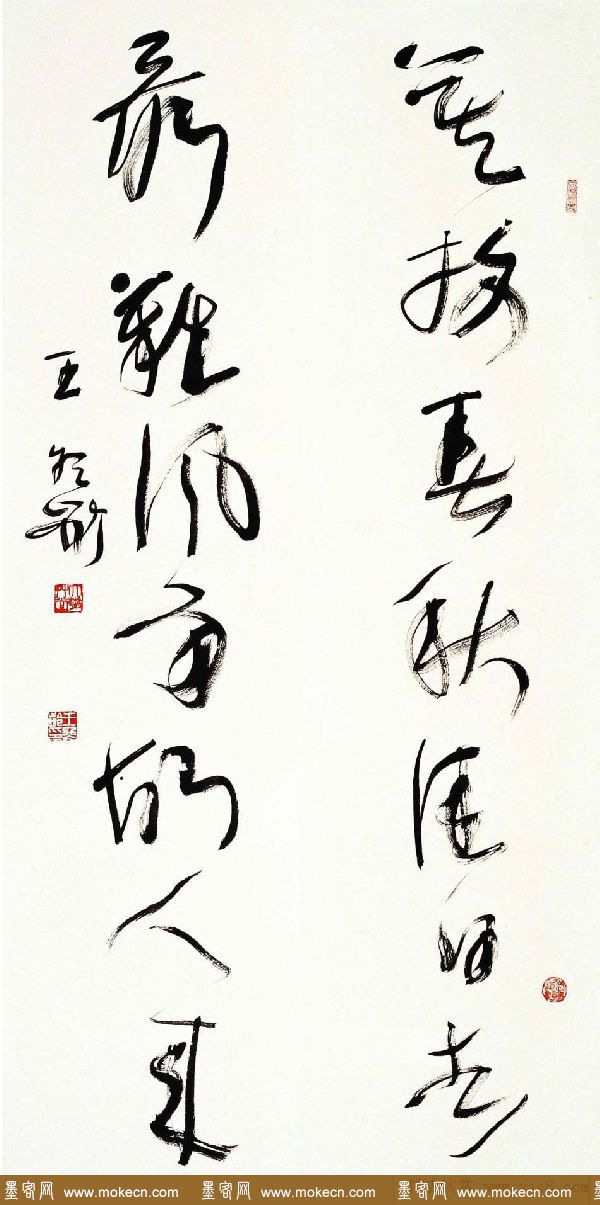 莫放春秋佳日去
最難風雨故人來
王冬齡
墨客网 www.mokecn.com 墨客网 www.mokecn.com 墨客网 www.mokecn.com